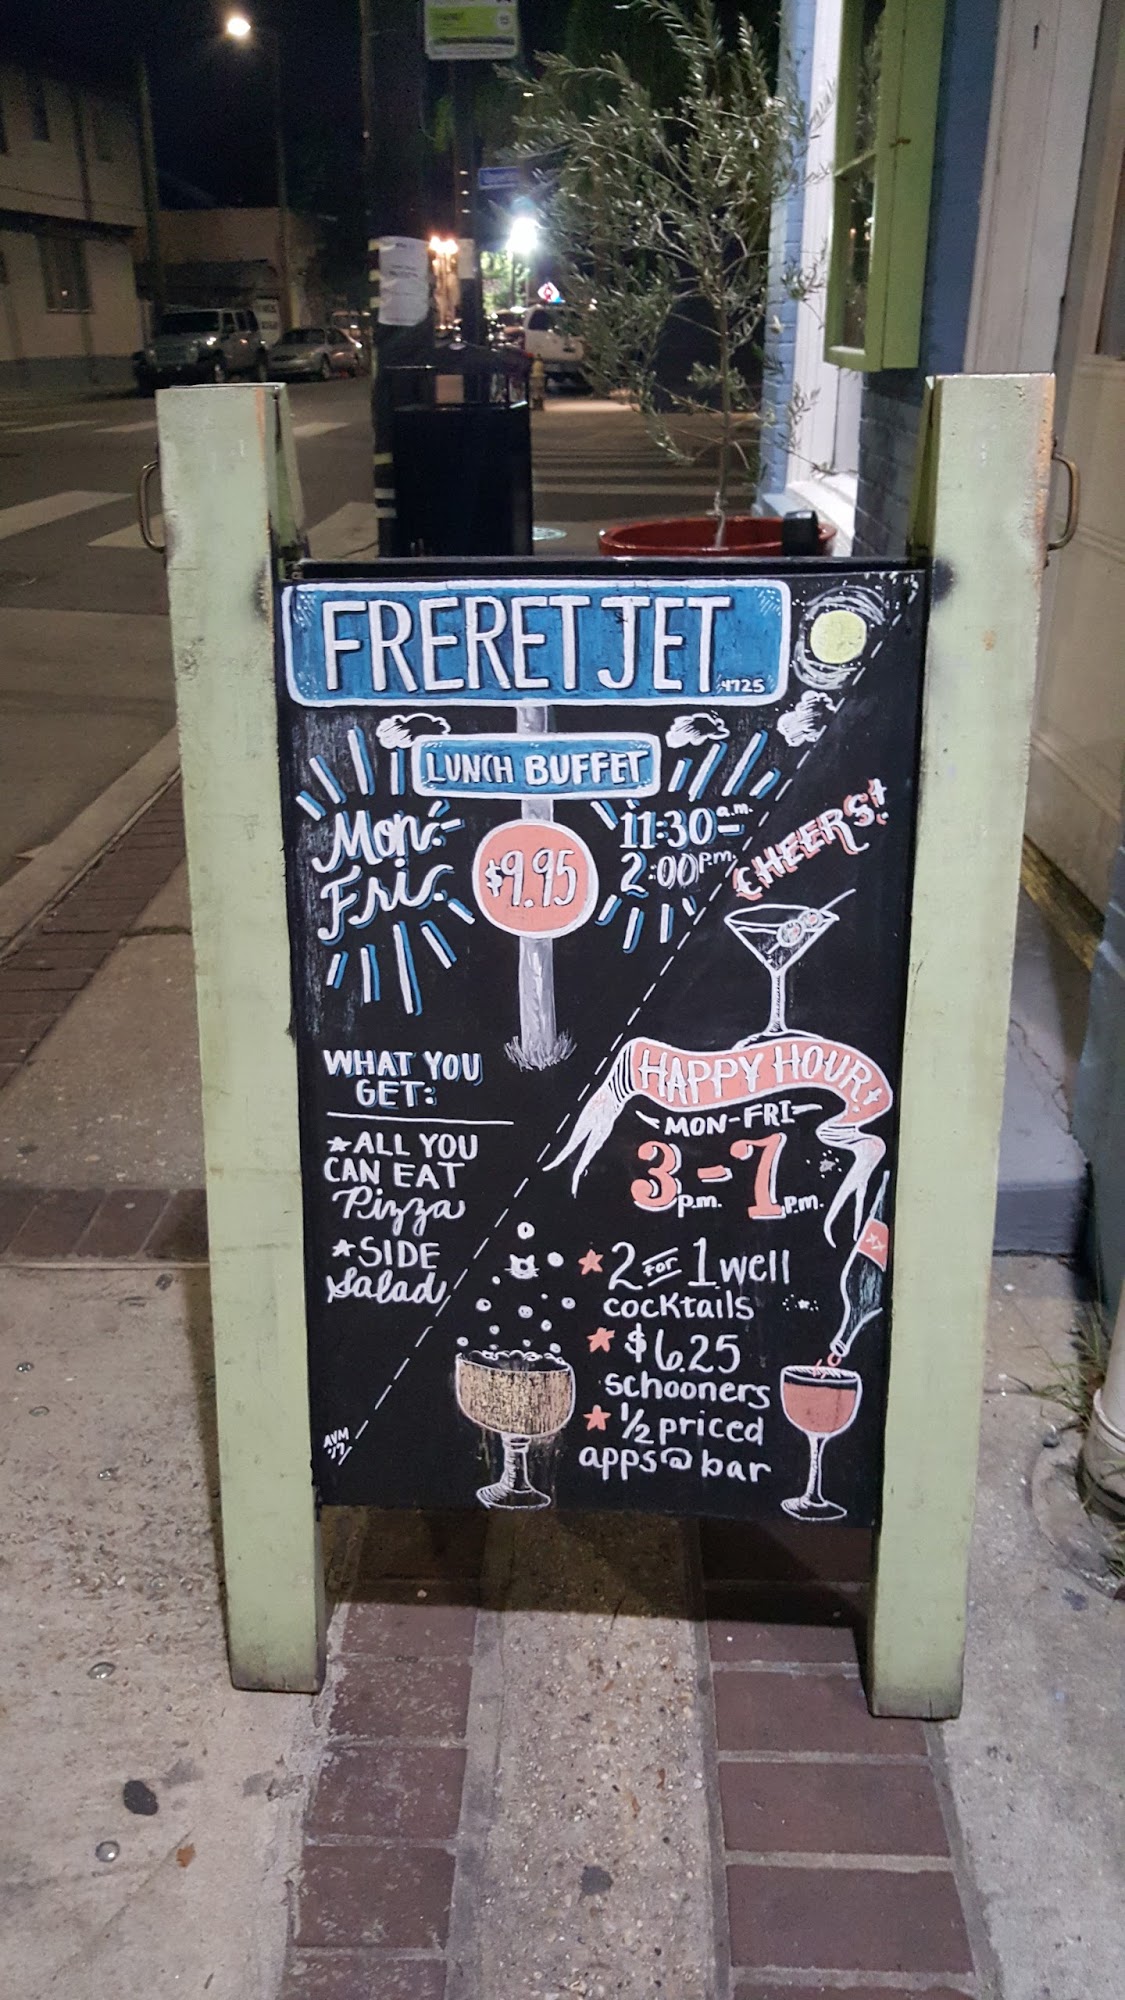 FRERET JET
4725
LUNCH BUFFET
Mon-
Fri.
$9.95
11:30 a.m. -
2:00 p.m.
CHEERS!
WHAT YOU
GET:
*ALL YOU
CAN EAT
Pizza
*SIDE
Salad
HAPPY HOUR!
MON-FRI
3 p.m. - 7 p.m.
2 for 1 well
cocktails
$6.25
schooners
1/2 priced
apps@bar
AVM
'17